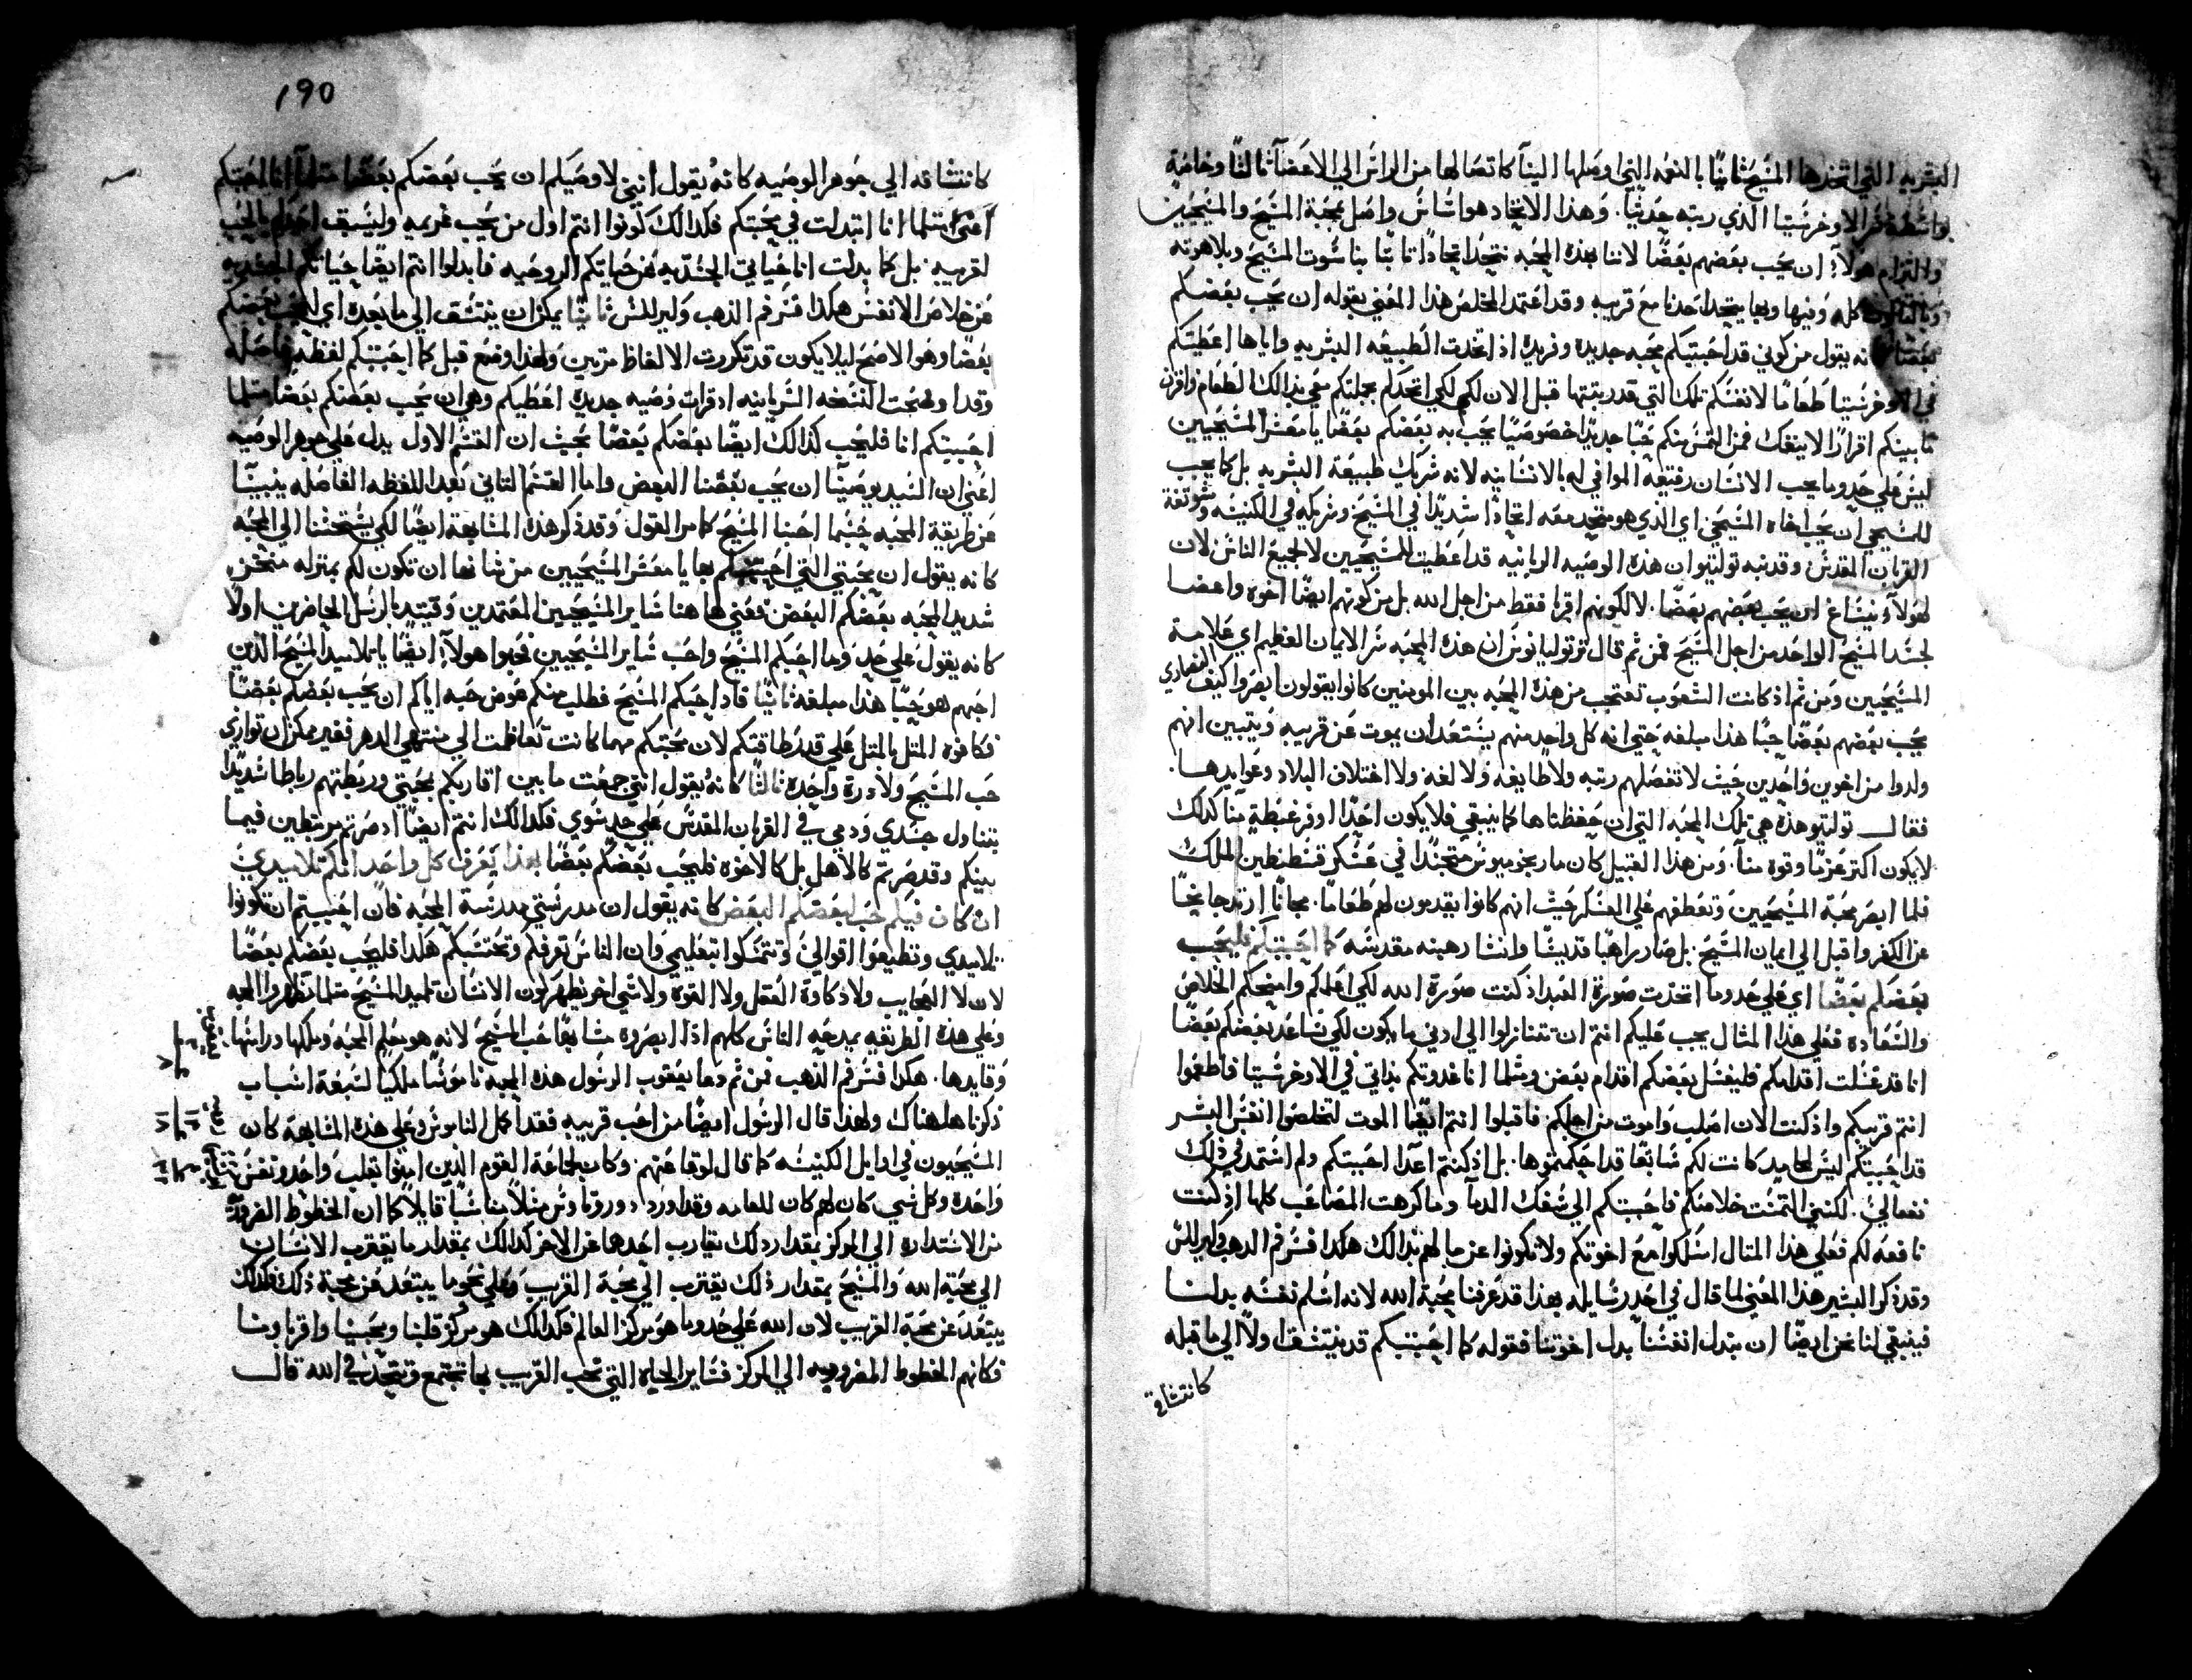 البشريه التي اتخذها المسيح ثانيًا بالنعمه التي وصلها الينا كاتصالها من الراس الي الاعضآ ثالثًا وخاصة
بواسطة سر الاوخرستيا الذي رتبه حديثًا. وهذا الاتحاد هو اساس واصل محبة المسيح والمسيحيين
والتزام هولآء ان يحب بعضهم بعضًا لاننا بهذه المحبه نتحد اتحادًا ثابتًا بناسوت المسيح وبلاهوته
وبالثالوث كله وفيها وبها يتحد احدنا مع قريبه وقد اعتمد المخلص هذا المعني بقوله ان يحب بعضكم
بعضًا كانه يقول من كوني قد احببتكم محبه جديده وفريده اذ اتخذت الطبيعه البشريه واياها اعطيتكم
في الاوخرستيا طعامًا لانفسكم تلك التي قد رتبتها قبل الان لكم لكي اتحد بجملتكم معي بذالك الطعام واقرن
ما بينكم اقرانًا لا ينفك فمن ثم التمس منكم حبًا جديدًا خصوصيًا يحب به بعضكم بعضًا يا معشر المسيحيين
ليس علي حد وما يحب الانسان رفيقه الموافي له بالانسانيه لانه شريك طبيعة البشريه بل كما يجب
للمسيحي ان يحب اخاه المسيحي اي الذي هو متحد معه اتحادًا شديدًا في المسيح وشريكه في الكنيسه وشركة
القربان المقدس وقد نبه توليتوا ان هذه الوصيه الربانيه قد اعطيت للمسيحيين لا لجميع الناس لان
لهولآء يساغ ان يحب بعضهم بعضًا. لا لكونهم اقربا فقط من اجل الله بل من كونهم ايضًا اخوه واعضا
لجسد المسيح الواحد من اجل المسيح فمن ثم قال ترتوليانوس ان هذه المحبه سر الايمان العظيم اي علامة
المسيحيين ومن ثم اذ كانت الشعوب تعجب من هذه المحبه بين المومنين كانوا يقولون ابصروا كيف النصاري
يحب بعضهم بعضًا حبًا هذا مبلغه حتي انه كل واحد منهم يستعد ان يموت عن قريبه ويتبين انهم
ولدوا من اخوين واحدين حيث لا تفصلهم رتبه ولا طايفه ولا لغه ولا اختلاف البلاد وعوايدها.
فقال توليتو هذه هي تلك المحبه التي ان حفظتاها كما ينبغي فلا يكون احدًا اوفر غبطةٍ منا كذلك
لا يكون اكثر عزمًا وقوه منآ. ومن هذا القبيل كان مار بخوميوس متجندًا في عسكر قسطنطين الملك
فلما ابصر محبة المسيحيين وتعطفهم علي العسكر حيث انهم كانوا يقدمون لهم طعامًا. مجانًا ارتد جايحًا
عن الكفر واقبل الي ايمان المسيح. بل صار راهبًا قديسًا وانشا رهبنه مقدسه كما احببتكم فليحب
بعضكم بعضًا اي علي حد وما اتخذت صورة العبد اذ كنت صورة الله لكي اعلمكم وامنحكم الخلاص
والسعاده فعلي هذا المثال يجب عليكم انتم ان تتنازلوا الي ادني ما يكون لكي يساعد بعضكم بعضًا
انا قد غسلت اقدامكم فليغسل بعضكم اقدام بعض ومثلما انا غدوتكم بذاتي في الاوخرستيا فاطعموا
انتم قريبكم واذ كنت الان اصلب واموت من اجلكم فاقبلوا انتم ايضًا الموت لتخلصوا انفس البشر
قد احببتكم ليس لمحاميد كانت لكم سابقًا قد احكمتموها. بل اذ كنتم اعدآ احببتكم ولم استمد في ذلك
نفعًا لي. لكنني التمست خلاصكم فاحببتكم الي سفك الدمآ وما كرهت المصاعب كلها اذ كنت
نافعه لكم فعلي هذا المثال اسلكوا مع اخوتكم ولا تكونوا عن ما لهم بذالك هكذا فسر فم الذهب وكيرللس
وقد ذكر البشير هذا المعني لما قال في احد رسايله بهذا قد عرفنا محبة الله لانه اسلم نفسه بدلنا
فينبغي لنا نحن ايضًا ان نبدل انفسنا بدل اخوتنا فقوله كما احببتكم قد ينتسق اولًا الي ما قبله
كانتساقه
190
كانتساقه الي جوهر الوصيه كانه يقول انني لاوصيكم ان يحب بعضكم بعضًا مثلما انا احبكم
اعني مثلما انا ابتدات في محبتكم فكدالك كونوا انتم اول من يحب غريمه وليسبق احدكم بالحب
لقريبه. بل كما بدلت انا حياتي الجسديه عن حياتكم الروحيه فابدلوا انتم ايضًا حياتكم الجسديه
عن خلاص الانفس هكذا فسر فم الذهب وكيرللس ثانيًا يمكن ان ينتسق الي ما بعده اي ليحب بعضكم
بعضًا وهو الاصح ليلا يكون قد تكررت الالفاظ مرتين ولهذا وضع قبل كما احببتكم لفظه فاصله
وقد اوضحت النسخه السريانيه اذ قرات وصيه جديده اعطيكم وهي ان يحب بعضكم بعضًا مثلما
احببتكم انا فليحب كذالك ايضًا بعضكم بعضًا بحيث ان القسم الاول يدل علي جوهر الوصيه
اعني ان السيد يوصينا ان يحب بعضنا البعض واما القسم الثاني بعد اللفظه الفاصله ينبينا
عن طريقة المحبه حسبما احبنا المسيح كما مر القول وقد ذكر هذه المشابهة ايضًا لكي يستحثنا الي المحبه
كانه يقول ان محبتي التي احببتكم بها يا معشر المسيحيين من شانها ان تكون لكم بمنزله منخس
شديد لمحبه بعضكم البعض فعني ها هنا ساير المسيحيين المعتمدين وقيد بالرسل الحاضرين اولًا
كانه يقول علي حد وما احبكم المسيح واحب ساير المسيحيين فحبوا هولآء ايضًا يا تلاميد المسيح الذين
احبهم هو حبًا هذا مبلغه ثانيًا قاد احبكم المسيح فطلب منكم عوض حبه اياكم ان يحب بعضكم بعضًا
فكافوه المثل بالمثل علي قدر طاقتكم لان محبتكم مهما كانت تعاظمت الي منتهي الدهر فغير ممكن ان توازي
حب المسيح ولا ذرة واحده ثالثًا كانه يقول انني جمعت ما بين اقاربكم بمحبتي وربطتهم رباطًا شديدًا
بتناول جسدي ودمي في القربان المقدس علي حد سوي فكدالك انتم ايضًا اذ صرتم مرتبطين فيما
بينكم وقد صرتم كالاهل بل كالاخوه فليحب بعضكم بعضًا بهذا يعرف كل واحد انكم تلاميدي
ان كان فيكم حب لبعضكم البعض كانه يقول ان مدرستي مدرسة المحبه فان احببتم ان تكونوا
تلاميدي وتطيعوا اقوالي وتتمسكوا بتعليمي وان الناس تعرفكم وتحتسبكم هكذا فليحب بعضكم بعضًا
لان لا العجايب ولا ذكاوة العقل ولا القوه ولا شي اخر يظهر كون الانسان تلميد المسيح مثلما تظهر المحبه
وعلي هذه الطريقه يمدحه الناس كلهم اذا ابصروه مشابهًا حب المسيح لانه هو معلم المحبه وملكها وراسها
وقايدها. هكذا فسر فم الذهب فمن ثم دعا يعقوب الرسول هذه المحبه ناموسًا ملكيًا لسبعة اسباب
ذكرناها هناك ولهذا قال الرسول ايضًا من احب قريبه فقد اكمل الناموس وعلي هذه المشابهة كان
المسيحيون في اوايل الكنيسه كما قال لوقا عنهم. وكان لجماعة القوم الذين امنوا قلب واحد ونفس
واحده وكل شي كان لهم كان للعامه وقد اورد دوروتاوس مثلًا مناسبًا قايلًا كما ان الخطوط المفروده
من الاستداره الي المركز بمقدار ذلك يتقارب احدهما عن الاخر كدالك بمقدار ما يقترب الانسان
الي محبة الله والمسيح بمقدار ذلك يقترب الي محبة القريب وعلي نحو ما يبتعد عن محبة ذلك فكذلك
يبتعد عن محبة القريب لان الله علي حد وما هو مركز العالم فكدالك هو مركز قلبنا ومحبتنا واقرباونا
فكانهم الخطوط المفروده الي المركز فساير الحياه التي تحب القريب بها تجتمع وتتحد في الله قال